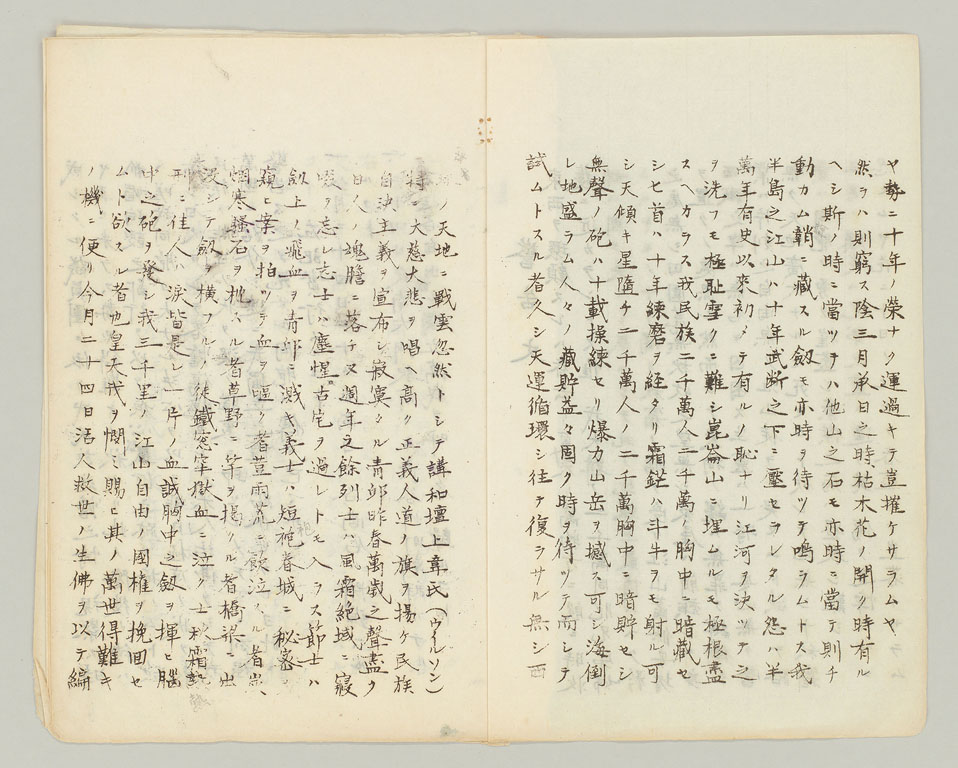 ヤ勢ニ十年ノ榮ナク運過キテ豈摧ケサラムヤ
然ラハ則窮ス陰三月承日之時枯木花ノ開ク時有ル
ヘシ斯ノ時ニ當ツテハ他山之石モ亦時ニ當テ則チ
動カム鞘ニ藏スル劔モ亦時ヲ待ツテ鳴ラムトス我
半島之江山ハ十年武断之下ニ壓セラレタル怨ハ半
萬年有史以來初メテ有ルノ恥ナリ江河ヲ決ツテ之
ヲ洗フモ極耻雪クニ難シ崑崙山ニ埋ムルモ極根盡
スヘカラス我民族二千萬人二千萬ノ胸中ニ暗藏セ
シ七首ハ十年練磨ヲ経タリ霜鋩ハ斗牛ヲモ射ル可
シ天傾キ星隨チ二千萬人ノ二千萬胸中ニ暗貯セシ
無聲ノ砲ハ十載操練セリ爆力山岳ヲ撼ス可シ海倒
レ地盛ラム人々ノ藏貯益々固ク時ヲ待ツテ而シテ
試ムトスル者久シ天運循環シ往テ復ラサル無シ西
ノ天地ニ戰雲忽然トシテ講和壇上韋氏(ウールソン)
特ニ大慈大悲ヲ唱ヘ高ク正義人道ノ旗ヲ揚ケ民族
自決主義ヲ宣布シ寂寞タル青邱昨春萬歳之聲盡ク
日人ノ魂膽ニ落チ又週年之餘列士ハ風霜絶域ニ寢
啜ヲ忘レ志士ハ塵惺古宅ヲ過レトモ入ラス節士ハ
劔上ノ飛血ヲ青邱ニ濺キ義士ハ短袍春城ニ秘密
窺ヒ案ヲ拍ツテ血ヲ嘔ク者荳雨荒ニ飲泣スル者
烟寒搔石ヲ枕スル者草野ニ竿ヲ揭クル者橋梁ニ出
没シテ劔ヲ横フルノ徒鐵窓牢獄血ニ泣ク士秋霜
刑ニ佳人ハ涙皆是レ一片ノ血誠胸中之劔ヲ揮ヒ腦
中之砲ヲ發シ我三千里ノ江山自由ノ國權ヲ挽回セ
ムト欲スル者也皇天我ヲ憫ミ賜ヒ其ノ萬世得難キ
ノ機ニ便リ今月二十四日活人救世ノ生佛ヲ以テ編